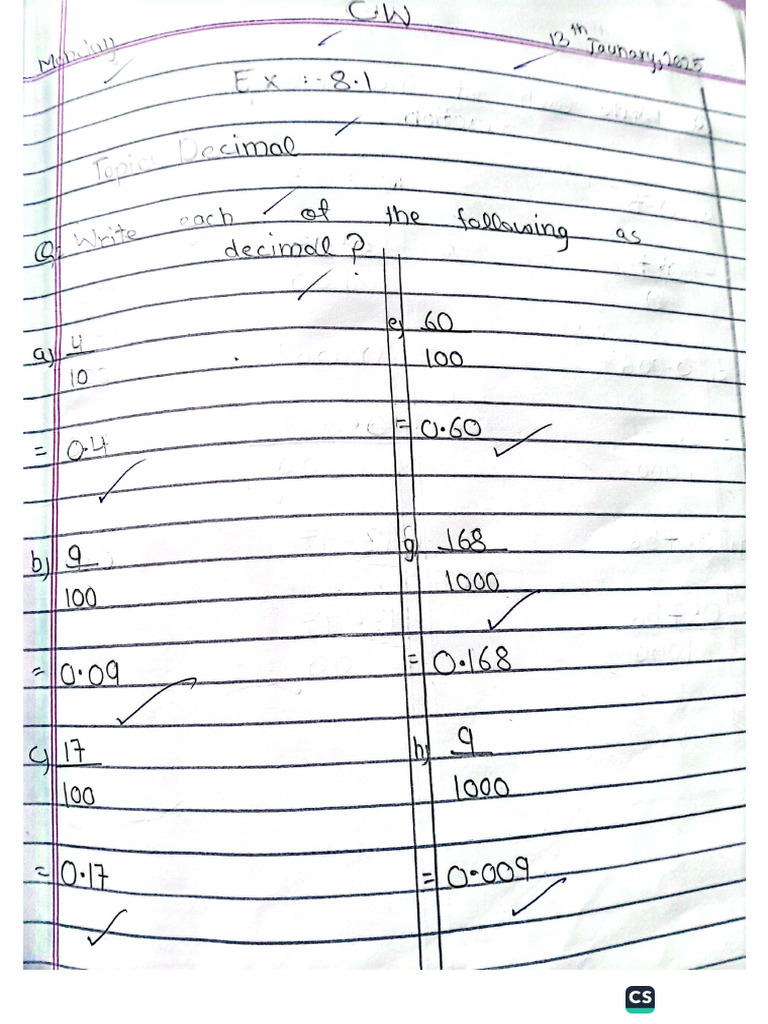 C.W
Monday 13th Jaunary, 2025
Ex :- 8.1
Topic: Decimal
Q: Write each of the following as
decimal?
a) 4
10
= 0.4
b) 9
100
= 0.09
c) 17
100
= 0.17
e) 60
100
= 0.60
g) 168
1000
= 0.168
h) 9
1000
= 0.009
CS